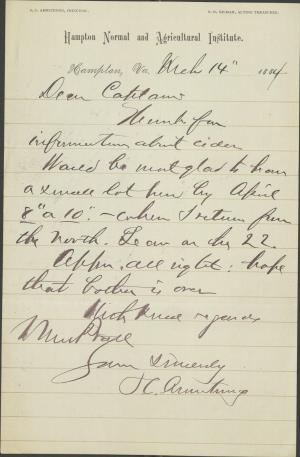 S. C. ARMSTRONG, PRINCIPAL.
Hampton Normal and Agricultural Institute.
Hampton, Va. Mch 14" 1884
Dear Captain
Thanks for
information about cider
Would be most glad to have
a small lot here by April
8" or 10". - when I return from
the North. on the 22.
all right; hope
that bother is over
With kind regards
Yours Sincerely
S C Armstrong